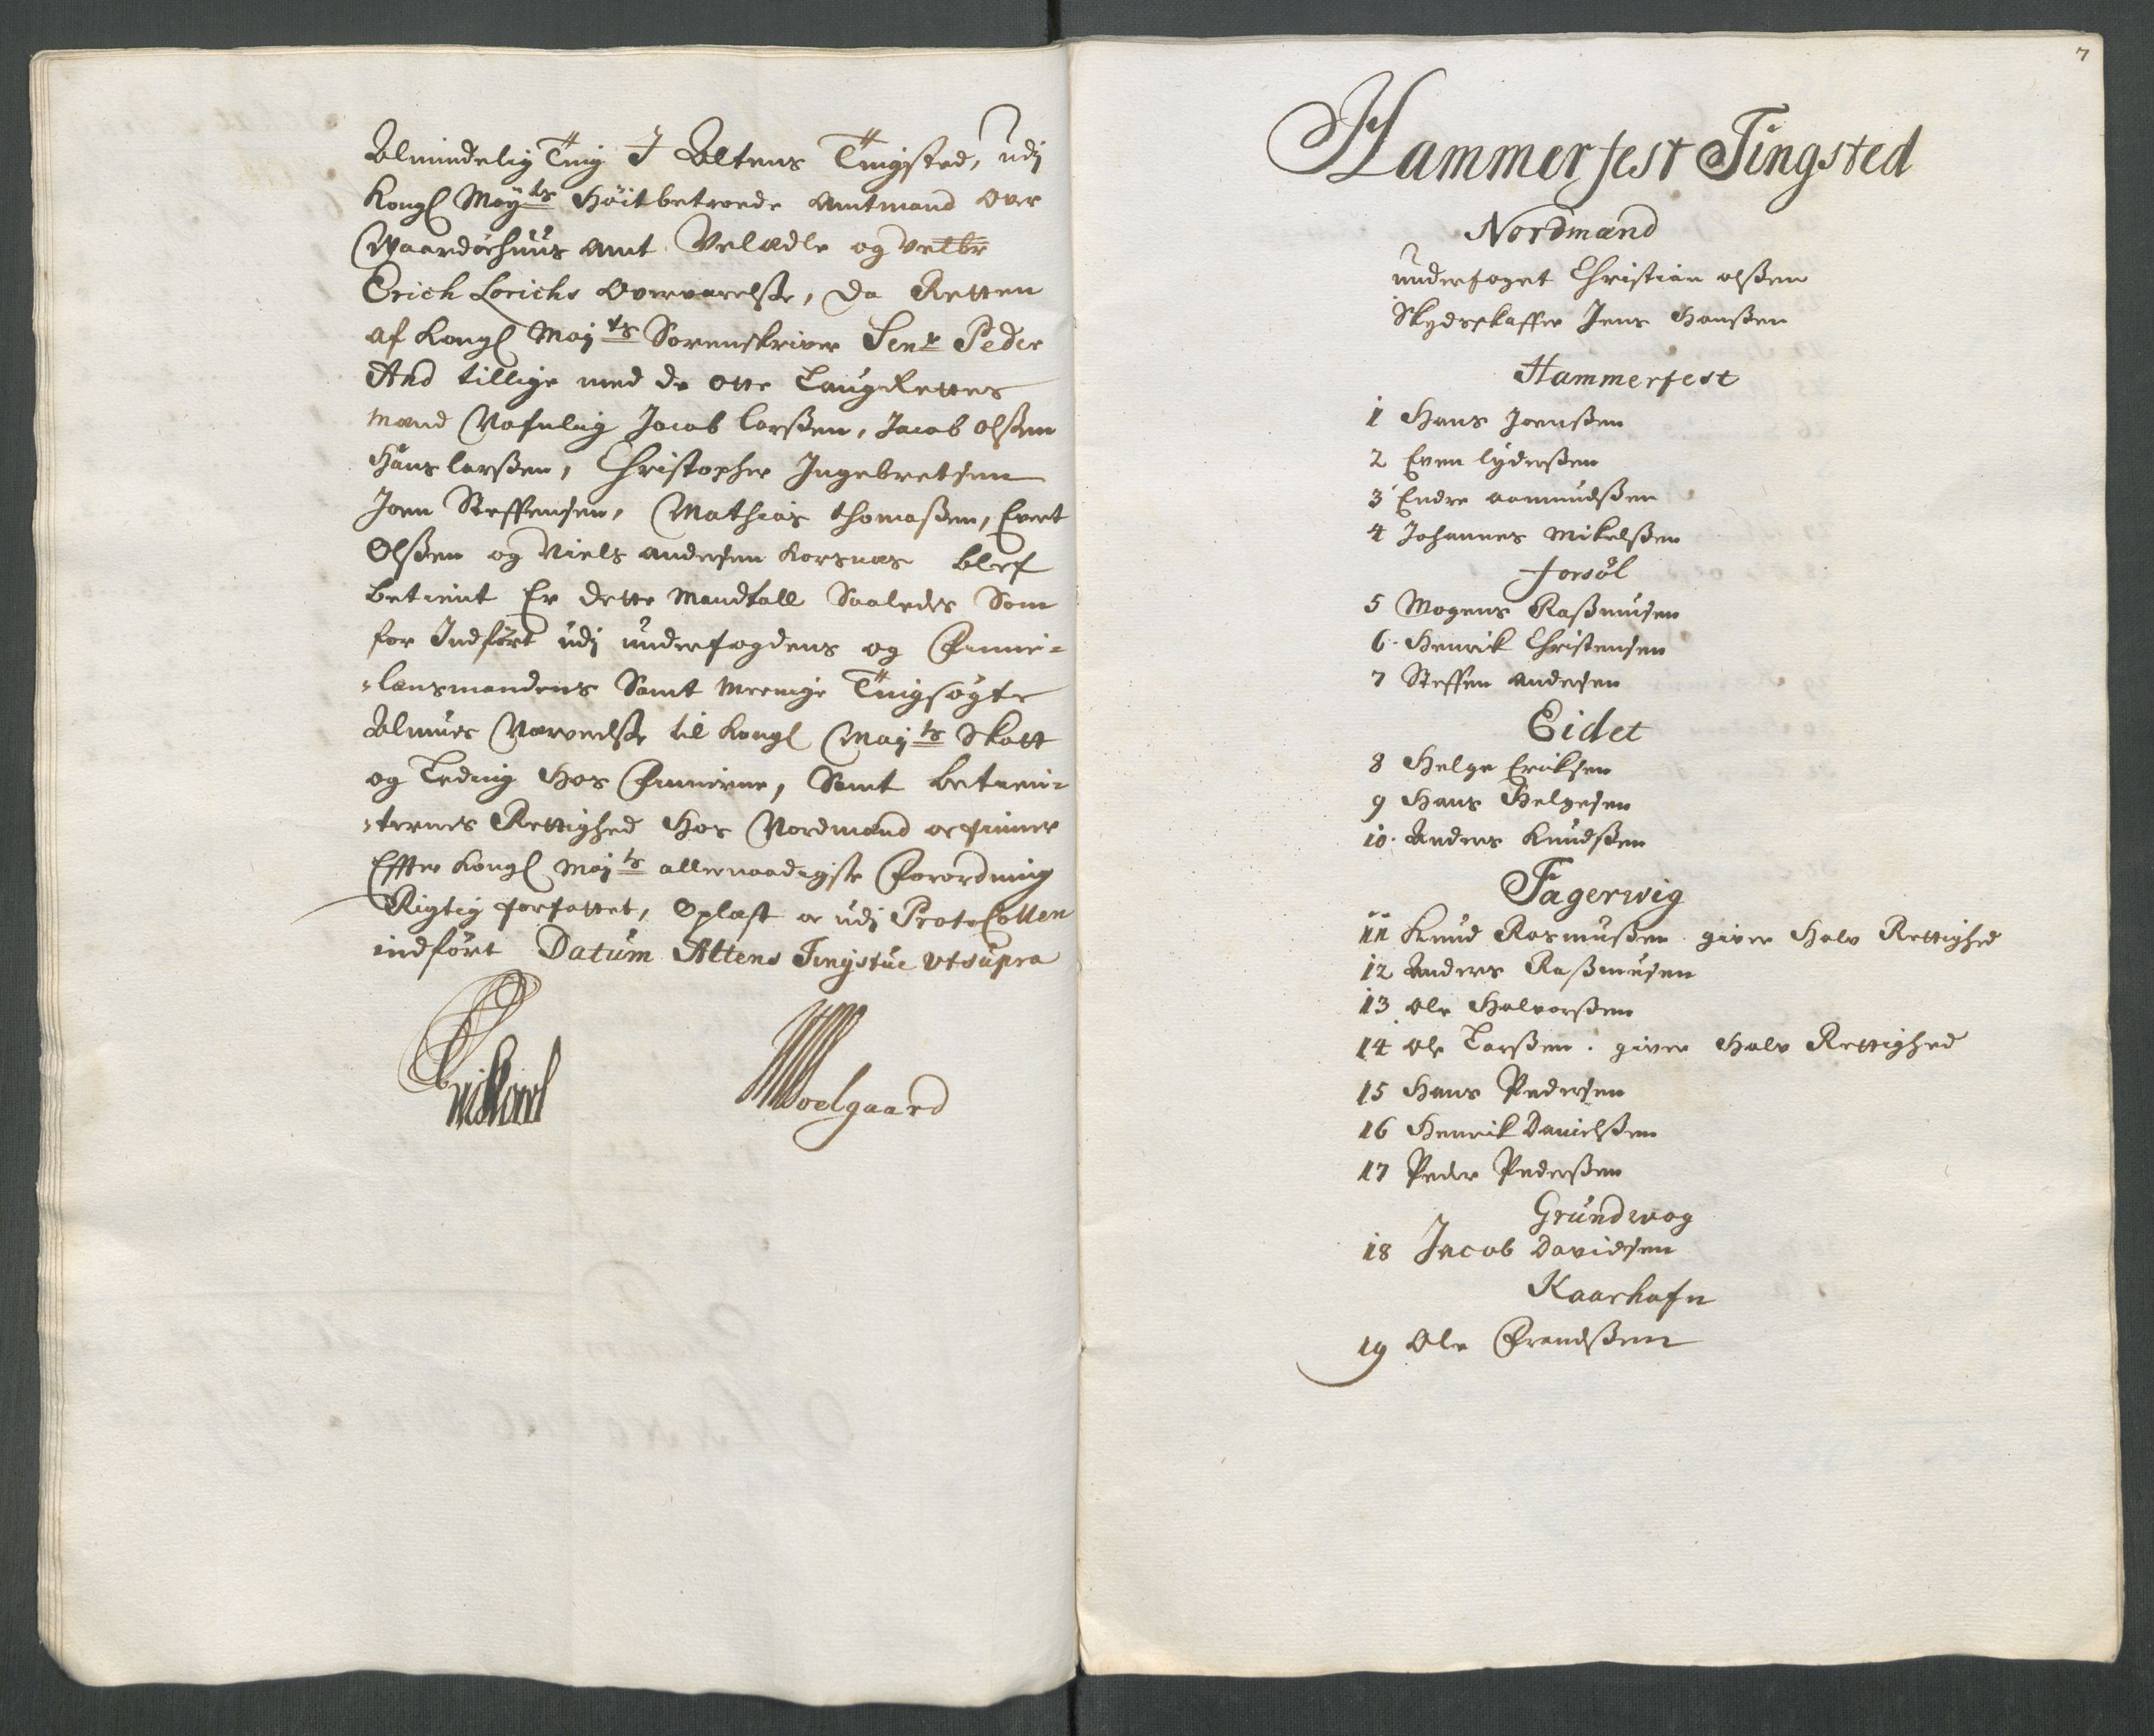 Almindelig Ting I Altens Tingsted, udj
Kongl Mayts Höitbetroede Amtmand Over
Waardöehuus Amt Velædle og Velbr
Erich Lorichs Overværelsse, da Retten
af Kongl Majts Sorenskriver Senr Peder
And tillige med de otte LaugRettes
mænd Nafnlig Jacob Larssen, Jacob Olssen
Hans Larssen, Christopher Ingebretsen
Joen Steffensen, Mathias Thomassen, Evert
Olssen og Niels Andersen Korsnæs blef
betient Er dette Mandtall Saaledes Som
for Indfört udj underfogdens og Finne-
-lænsmandens Samt Meenige Tingsögte
Almues Nærværelsse til Kongl Majts Skatt
og Leding Hos Finnerne, Samt betien-
-ternes Rettighed Hos Nordmænd oc finner
Effter Kongl Majts allernaadigste Forordning
Rigtig forfattet, Oplæst oc udj Protocollen
indfört Datum Altens Tingstue Ut supra
Soelgaard
7
Hammerfest Tingsted
Nordmænd
underfoget Christian olssen
Skydsskaffer Jens Hanssen
Hammerfest
1 Hans Joenssen
2 Even Lyderssen
3 Endre Aamundssen
4 Johannes Mikelssen
forsöl
5 Mogens Rassmusen
6 Henrik Christensen
7 Steffen Andersen
Eidet
8 Helge Eriksen
9 Hans Helgesen
10 Anders Knudssen
Fagerwig
11 Knud Rasmussen giver Halv Rettighed
12 Anders Rassmusen
13 Ole Halvorssen
14 Ole Larssen. giver Halv Rettighed
15 Hans Pedersen
16 Henrik Danielssen
17 Peder Pederssen
Grundwog
18 Jacob Davidsen
Kaarhafn
19 Ole Frandssen